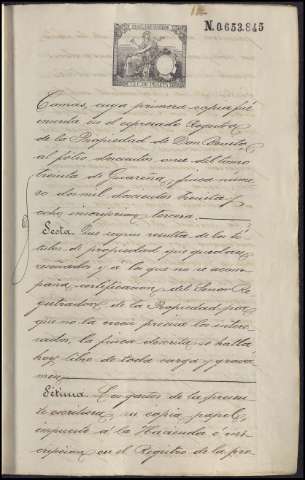 N.0.653.845
Comas, cuya primera copia fué
en el expresado Registro
de la Propiedad de Don Benito,
al folio doscientos once del tomo
treinta de Guareña, finca núme-
ro dos mil doscientos treinta y
ocho, inscripcion tercera.
Sesta. Que segun resulta de los tí-
tulos de propiedad que quedan
reseñados y á la que no se acom-
paña certificacion del Señor Re-
gistrador de la Propiedad por-
que no la creen precisa los intere-
sados, la finca descrita se halla
hoy libre de toda carga y gravá-
men.
Sétima. Los gastos de la presen-
te escritura, su copia, papel,
impuesto á la Hacienda é ins-
cripcion en el Registro de la pro-